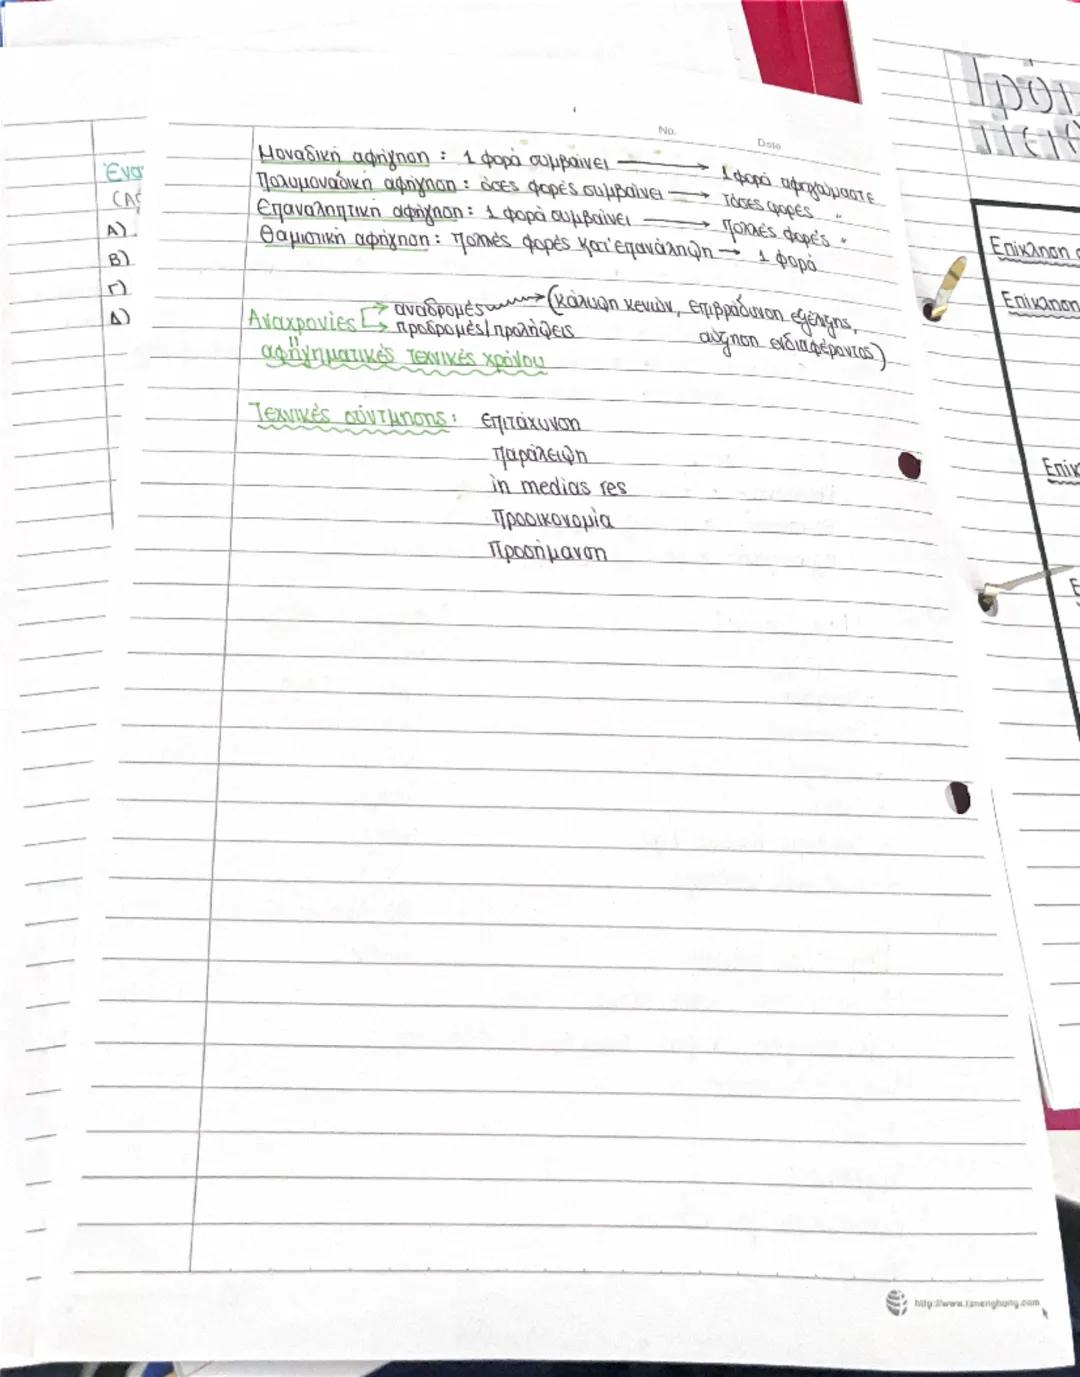 No.
Date
Μοναδική αφήγηση : 1 φορά συμβαίνει → 1 φορά αφηγούμαστε
Πολυμοναδική αφήγηση : όσες φορές συμβαίνει → τόσες φορές "
Επαναληπτική αφήγηση : 1 φορά συμβαίνει → πολλές φορές "
Θαμιστική αφήγηση : πολλές φορές κατ'επανάληψη → 1 φορά
Αναχρονίες → αναδρομές → (κάλυψη κενών, επιβράδυνση εξέλιξης,
→ προδρομές/προλήψεις αύξηση ενδιαφέροντος)
"
αφηγηματικές τεχνικές χρόνου
Τεχνικές σύντμησης : επιτάχυνση
παράλειψη
in medias res
προοικονομία
προσήμανση
Α)
Β)
Γ)
Δ)
Επίκληση
Επίκληση